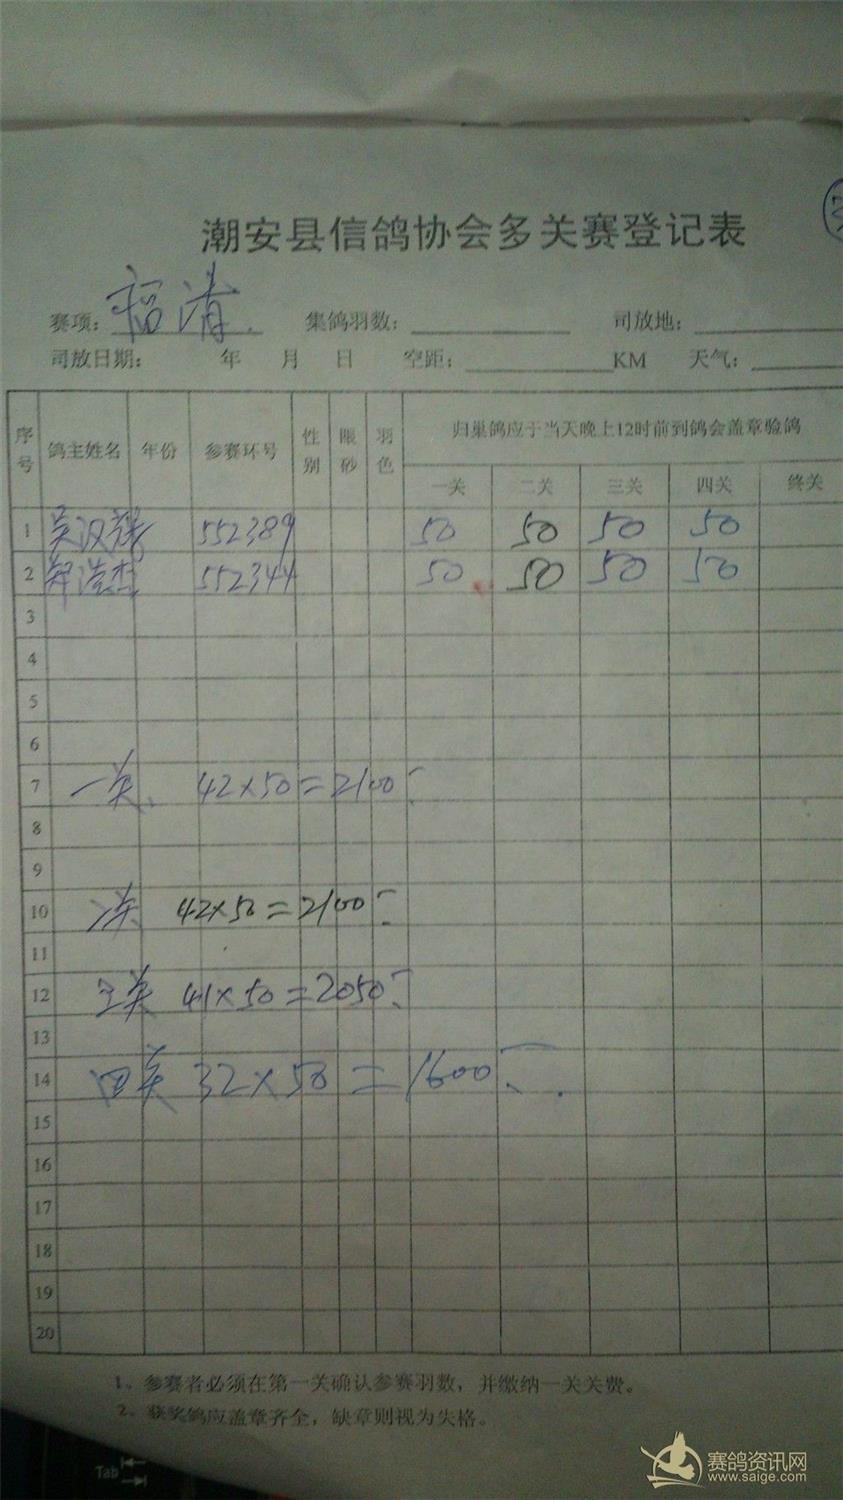 潮安县信鸽协会多关赛登记表
赛项: 福清. 集鸽羽数: 司放地:
司放日期: 年 月 日 空距: KM 天气:
序号 鸽主姓名 年份 参赛环号 性别 眼砂 羽色 归巢鸽应于当天晚上12时前到鸽会盖章验鸽
一关 二关 三关 四关 终关
1 吴汉 552389 50 50 50 50
2 郑浩杰 552344 50 50 50 50
3
4
5
6
7 一关、 42×50=2100
8
9
10 关 42×50=2100
11
12 三关 41×50=2050
13
14 四关 32×50=1600
15
16
17
18
19
20
1、参赛者必须在第一关确认参赛羽数，并缴纳一关关费。
2、获奖鸽应盖章齐全，缺章则视为失格。
Tab
赛鸽资讯网
www.saige.com